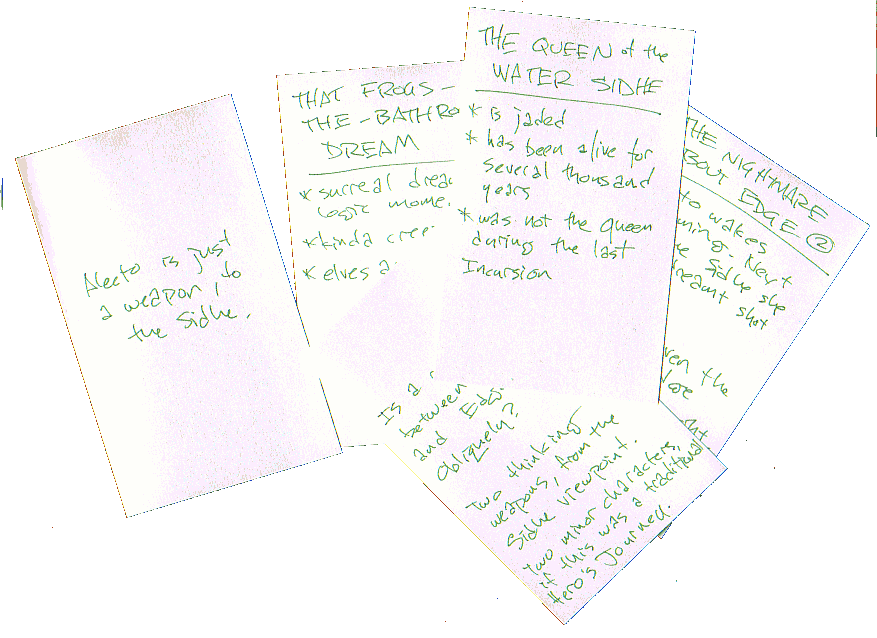 Alecto is just
a weapon, to
the Sidhe.
THAT FROGS-
THE-BATHRO
DREAM
* surreal drea
logic mome
* kinda cree
* elves a
THE QUEEN of the
WATER SIDHE
* is jaded
* has been alive for
several thousand
years
* was not the queen
during the last
Incursion
THE NIGHTMARE
BOUT EDGE ②
to wakes
ning. Next
e Sidhe she
shot
ven the
Is a
between
and
Obliquely?
Two thinking
weapons, from the
Sidhe viewpoint.
Two minor characters,
if this was a traditional
Hero's Journey.